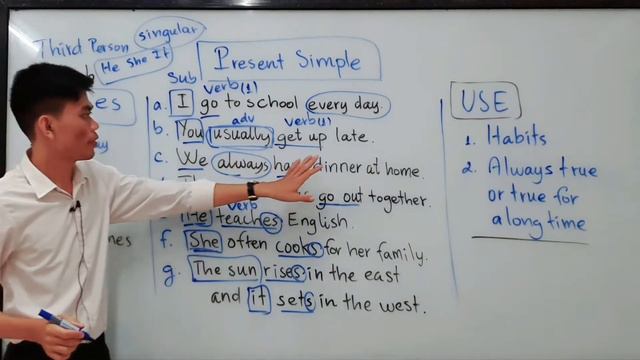 Third Person singular
He She It
Present Simple
Sub verb(1)
a. I go to school every day.
adv verb(1)
b. You usually get up late.
c. We always dinner at home.
go out together.
verb
He teaches English.
f. She often cooks for her family.
g. The sun rises in the east
and it sets in the west.
USE
1. Habits
2. Always true
or true for
a long time